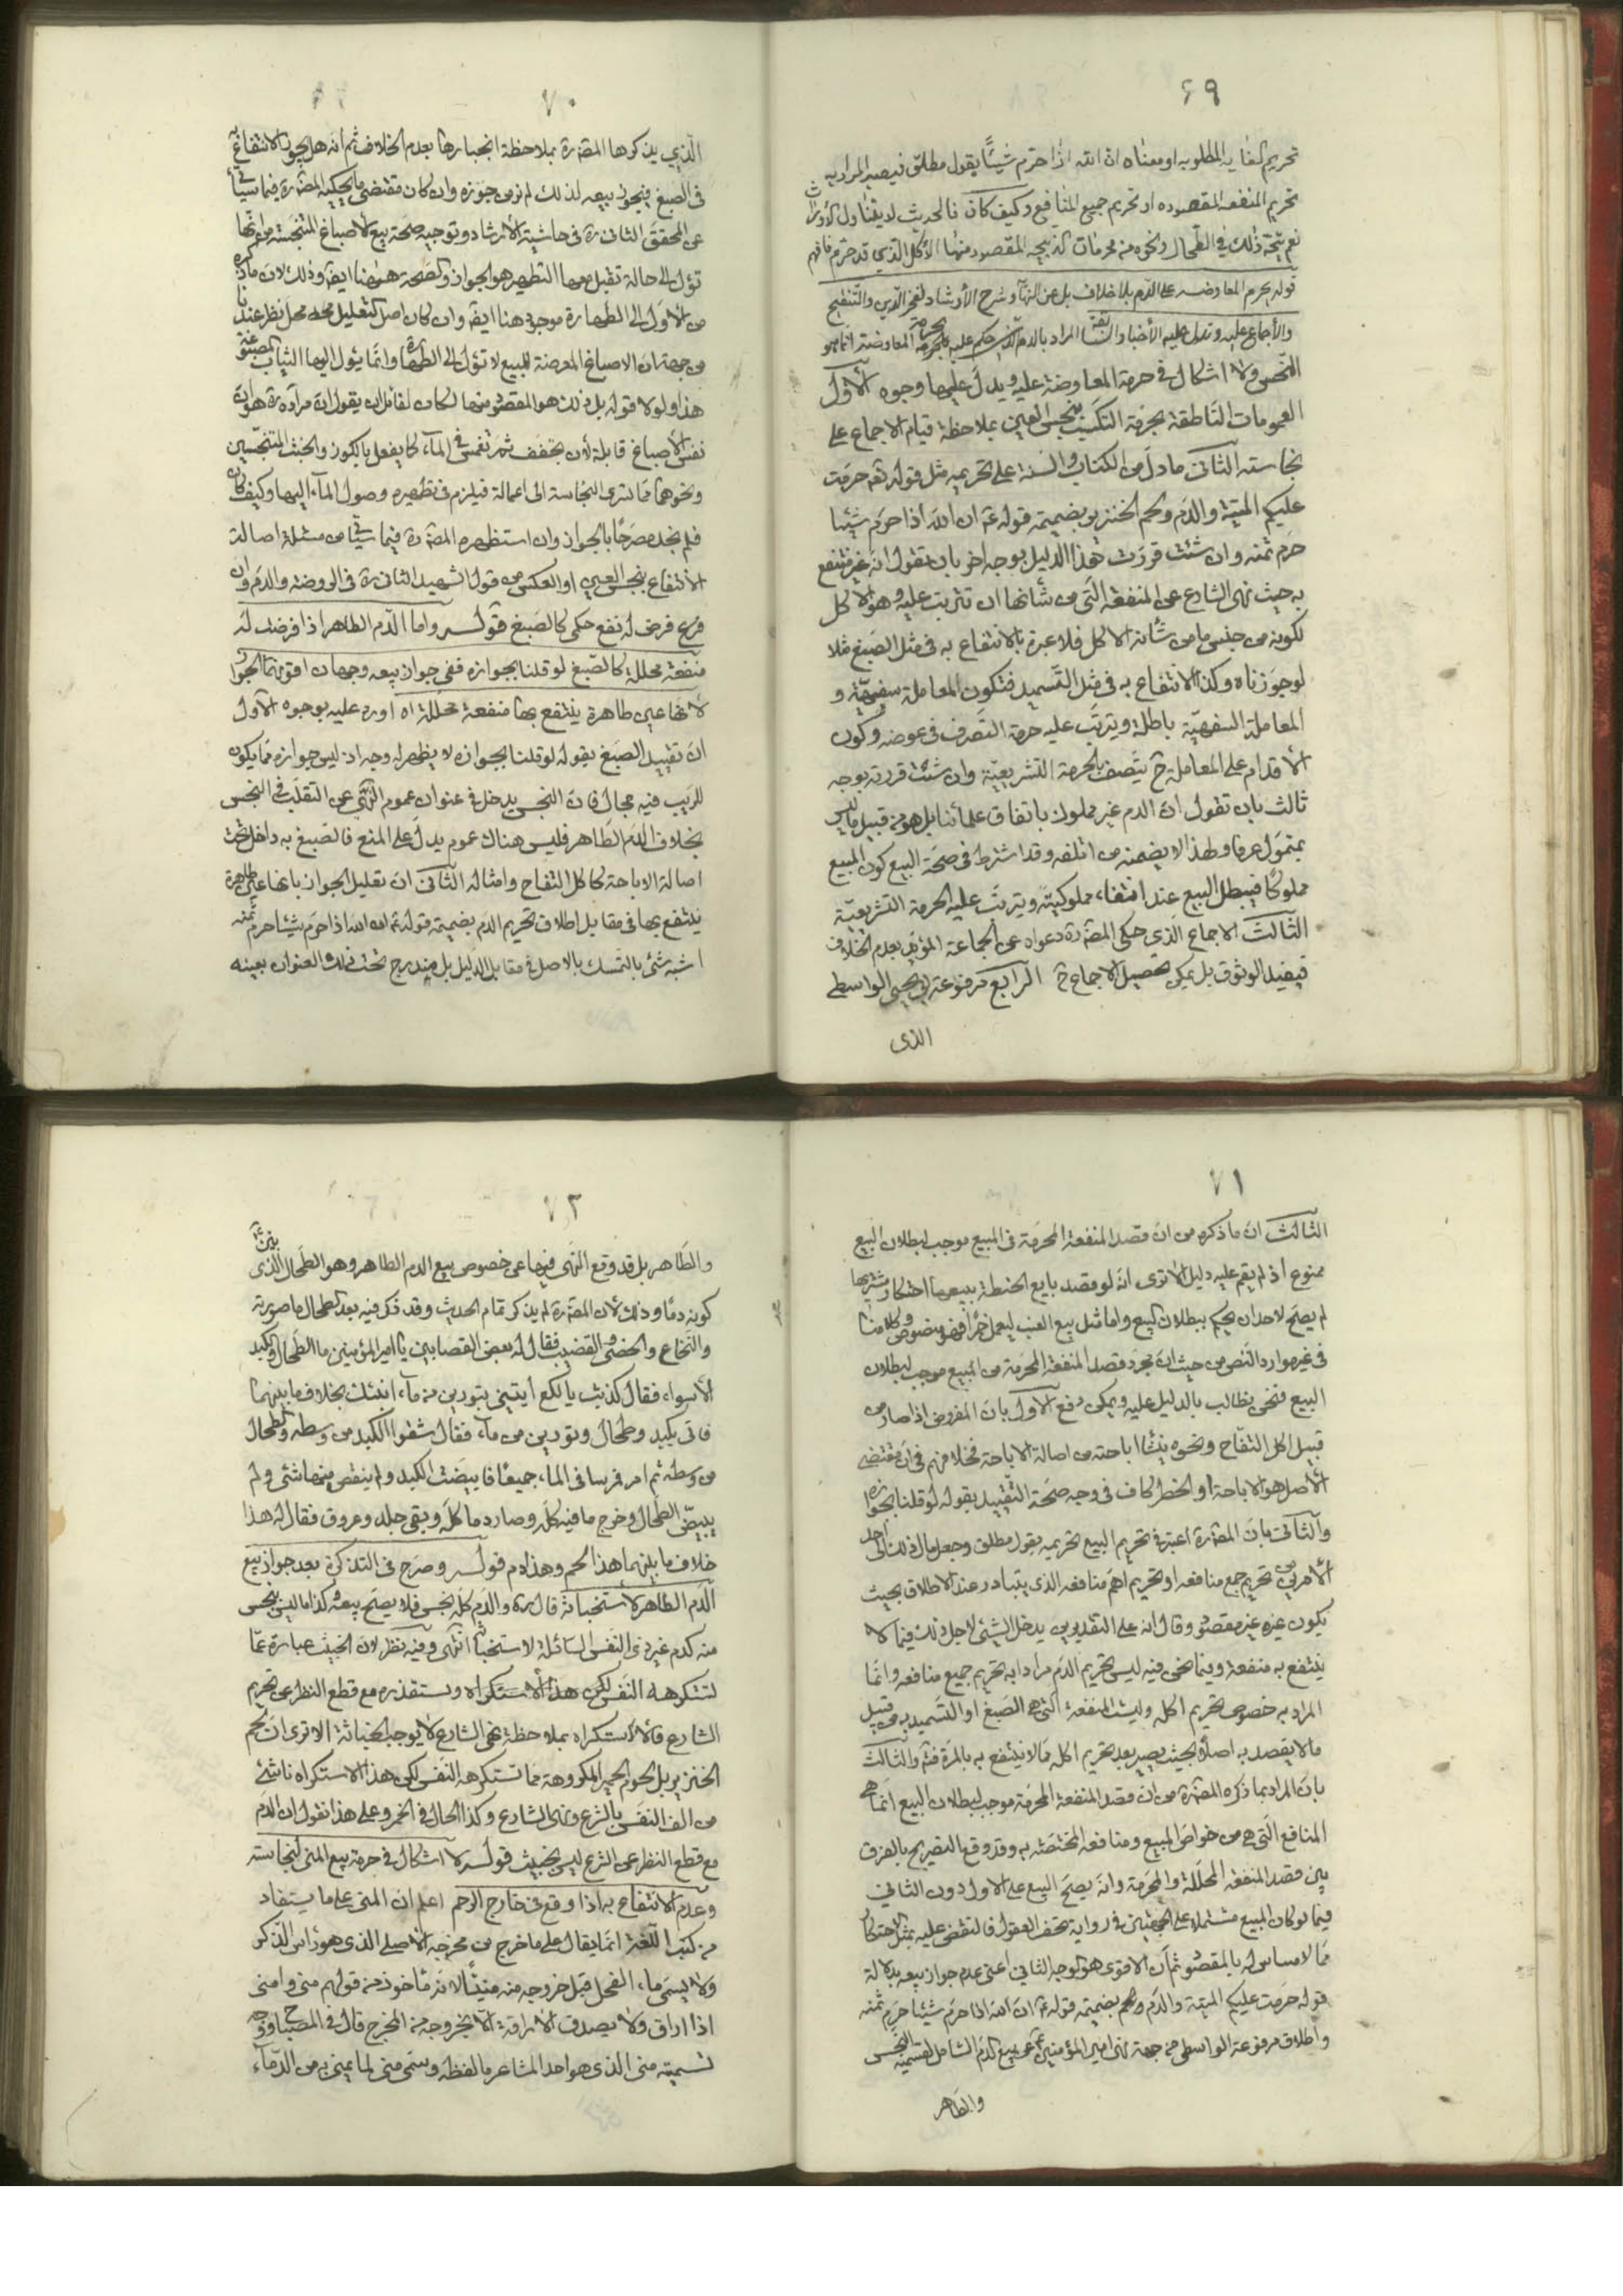 ۶۹
تحريم الغاية المطلوبه او معناه ان الله اذا حرّم شيئًا يقول مطلق فيصير المراد به
تحريم المنفعه المقصوده او تحريم جميع المنافع وكيف كان فالحديث لا يتناول الارواث
نعم يتجه ذلك في الطحال ونحوه من محرمات الذبيحه المقصود منها الاكل الذي قد حرم فافهم
قوله يحرم المعاوضه على الدم بلا خلاف بل عن النهاية وشرح الارشاد لفخر الدين والتنقيح
والاجماع عليه وتدل عليه الأخبار السابقة المراد بالدم الذي حكم عليه بحرمة المعاوضة انما هو
النجس ولا اشكال في حرمة المعاوضة عليه ويدل عليها وجوه الأول
العمومات الناطقة بحرمة التكسب بنجس العين بملاحظة قيام الاجماع على
نجاسته الثاني ما دل من الكتاب والسنة على تحريمه مثل قوله تعه حرمت
عليكم الميتة والدم ولحم الخنزير بضميمة قوله عه ان الله اذا حرم شيئا
حرم ثمنه وان شئت قررت هذا الدليل بوجه اخر بان تقول انه غير منتفع
به حيث نهى الشارع عن المنفعة التي من شأنها ان تترتب عليه وهو الاكل
لكونه من جنس ما من شأنه الاكل فلا عبرة بالانتفاع به في مثل الصبغ مثلا
لو جوزناه وكذا الانتفاع به في مثل التسميد فتكون المعاملة سفهيّة و
المعاملة السفهيّة باطلة ويترتب عليه حرمة التصرف في عوضه وكون
الاقدام على المعاملة ح يتصف بالحرمة التشريعيّة وان شئت قررته بوجه
ثالث بان تقول ان الدم غير مملوك باتفاق علمائنا بل هو من قبيل ما ليس
بمتمول عرفا ولهذا لا يضمنه من اتلفه وقد اشترط في صحة البيع كون المبيع
مملوكًا فيبطل البيع عند انتفاء مملوكيته ويترتب عليه الحرمة التشريعيّة
الثالث الاجماع الذي حكى المصره دعواه عن الجماعة المؤيد بعدم الخلاف
فيفيد الوثوق بل يمكن تحصيل الاجماع ح الرابع مرفوعة ابي يحيى الواسطي
الذي
۷۰
الذي يذكرها المصره بملاحظة انجبارها بعدم الخلاف ثم انه هل يجوز الانتفاع به
في الصبغ فيجوز بيعه لذلك لم نر من جوزه وان كان مقتضى ما يحكيه المصره فيما سيأتي
عن المحقق الثاني ره في حاشية الارشاد وتوجيه صحة بيع الاصباغ المتنجسه من انها
تؤل الى حالة تقبل معها التطهير هو الجواز والصحه هيهنا ايضا وذلك لان ما ذكره
من الأول الى الطهارة موجود هنا ايضا وان كان اصل التعليل محل نظر عندنا
من جهة ان الاصباغ المعرضة للبيع لا تؤل الى الطهارة وانما يئول اليها الثياب المصبوغة
هذا ولولا قوله بل ذلك هو المقصود منها لكان لقائل ان يقول ان مراده ره هو ان
نفس الأصباغ قابلة لأن يجفف ثم تغمس في الماء كما يفعل بالكوز والخشب المتنجسين
ونحوهما مما تسرى النجاسة الى اعماقه فيلزم في تطهيره وصول الماء اليها وكيف كان
فلم نجد مصرحًا بالجواز وان استظهره المصره فيما سيأتي من مسئلة اصالة
الأنتفاع بنجس العين او العكس من قول الشهيد الثاني ره في الروضة والدم وان
فرض له نفع حكمي كالصبغ قوله واما الدم الطاهر اذا فرضت له
منفعة محللة كالصبغ لو قلنا بجوازه ففي جواز بيعه وجهان اقويهما الجواز
لانها عين طاهرة ينتفع بها منفعة محللة اه اورد عليه بوجوه الأول
ان تقييد الصبغ بقوله لو قلنا بجوازه لا يظهر له وجه اذ ليس جوازه مما يكون
للريب فيه مجال فان النجس يدخل في عنوان عموم النهي عن التقلب في النجس
بخلاف الدم الطاهر فليس هناك عموم يدل على المنع فالصبغ به داخل تحت
اصالة الاباحة كاكل التفاح وامثاله الثاني ان تعليل الجواز بانها عين طاهرة
ينتفع بها في مقابل اطلاق تحريم الدم بضميمة قوله عه ان الله اذا حرم شيئا حرم ثمنه
اشبه شئ بالتمسك بالاصل في مقابل الدليل بل يندرج تحت ذلك العنوان بعينه
۷۱
الثالث ان ما ذكره من ان قصد المنفعة المحرمة في المبيع موجب لبطلان البيع
ممنوع اذ لم يقم عليه دليل الا ترى انه لو قصد بايع الحنطة ببيعها احتكار مشتريها
لم يصح لاحد ان يحكم ببطلان البيع واما مثل بيع العنب ليعمل خمرًا فهو منصوص وكلامنا
في غير موارد النص من حيث ان مجرد قصد المنفعة المحرمة من المبيع موجب لبطلان
البيع فنحن نطالب بالدليل عليه ويمكن دفع الاول بان المفروض اذا صار من
قبيل اكل التفاح ونحوه ينشأ اباحته من اصالة الاباحة فخلافهم في ان مقتضى
الأصل هو الاباحة او الحظر كاف في وجه صحة التقييد بقوله لو قلنا بجوازه
والثاني بان المصره اعتبر في تحريم البيع تحريمه بقول مطلق وجعل مال ذلك الى احد
الأمرين من تحريم جمع منافعه او تحريم اهم منافعه الذي يتبادر عند الاطلاق بحيث
يكون غيره غير مقصود وقال انه على التقديرين يدخل الشئ لاجل ذلك فيما لا
ينتفع به منفعة وفيما نحن فيه ليس تحريم الدم مرادا به تحريم جميع منافعه وانما
المراد به خصوص تحريم اكله وليست المنفعة التي هي الصبغ او التسميد به من قبيل
ما لا يقصد به اصلا بحيث يصير بعد تحريم اكله مما لا ينتفع به بالمرة فتم والثالث
بان المراد بما ذكره المصره من ان قصد المنفعة المحرمة موجب لبطلان البيع انما هي
المنافع التي هي من خواص المبيع ومنافعه المختصة به وقد وقع التصريح بالفرق
بين قصد المنفعة المحللة والمحرمة وانه يصح البيع على الاول دون الثاني
فيما لو كان المبيع مشتملا على الجهتين في رواية تحف العقول فالنقض عليه بمثل الاحتكار
مما لا مساس له بالمقصود ثم ان الاقوى هو الوجه الثاني اعني عدم جواز بيعه بدلالة
قوله حرمت عليكم الميتة والدم ولحم بضميمة قوله عه ان الله اذا حرم شيئا حرم ثمنه
واطلاق مرفوعة الواسطي من جهة نهى امير المؤمنين عه عن بيع الدم الشامل لقسميه النجس
والطاهر
۷۲
والطاهر بل قد وقع النهي فيها عن خصوص بيع الدم الطاهر وهو الطحال الذي بين
كونه دمًا وذلك لان المصره لم يذكر تمام الحديث وقد ذكر فيه بعد الطحال ما صورته
والنخاع والخصى والقضيب فقال له بعض القصابين يا امير المؤمنين ما الطحال والكبد
الا سواء فقال كذبت يا لكع ايتيني بتورين من ماء انبئك بخلاف ما بينهما
فاتى بكبد وطحال وتورين من ماء فقال شقوا الكبد من وسطه والطحال
من وسطه ثم امر فمرسا في الماء جميعًا فابيضت الكبد ولم ينقص منها شئ ولم
يبيض الطحال وخرج ما فيه كله وصار دما كله وبقى جلد وعروق فقال له هذا
خلاف ما بينهما هذا لحم وهذا دم قوله وصرح في التذكرة بعد جواز بيع
الدم الطاهر لاستخباثه قال ره والدم كله نجس فلا يصح بيعه وكذا ما ليس بنجس
منه كدم غير ذي النفس السائلة لاستخباثه انتهى وفيه نظر لان الخبيث عبارة عما
تستكرهه النفس لكن هذا الاستكراه وتستقذره مع قطع النظر عن تحريم
الشارع فالاستكراه بملاحظة نهى الشارع لا يوجب الخباثة الا ترى ان لحم
الخنزير بل لحوم الحمير المكروهة مما تستكرهه النفس لكن هذا الاستكراه ناشئ
من الف النفس بالشرع ونهى الشارع وكذا الحال في الخمر وعلى هذا نقول ان الدم
مع قطع النظر عن الشرع ليس بخبيث قوله لا اشكال في حرمة بيع المنى لنجاسته
وعدم الانتفاع به اذا وقع في خارج الرحم اعلم ان المنى على ما يستفاد
من كتب اللغة انما يقال على ما خرج من مخرجه الأصلي الذي هو رأس الذكر
ولا يسمى ماء الفحل قبل خروجه منه منيًا لانه مأخوذ من قولهم منى وامنى
اذا اراق ولا يصدق الاراقة الا بخروجه من المخرج قال في المصباح ووجه
تسميته منى الذي هو احد المشاعر ما لفظه وسمى منى لما يمنى به من الدماء